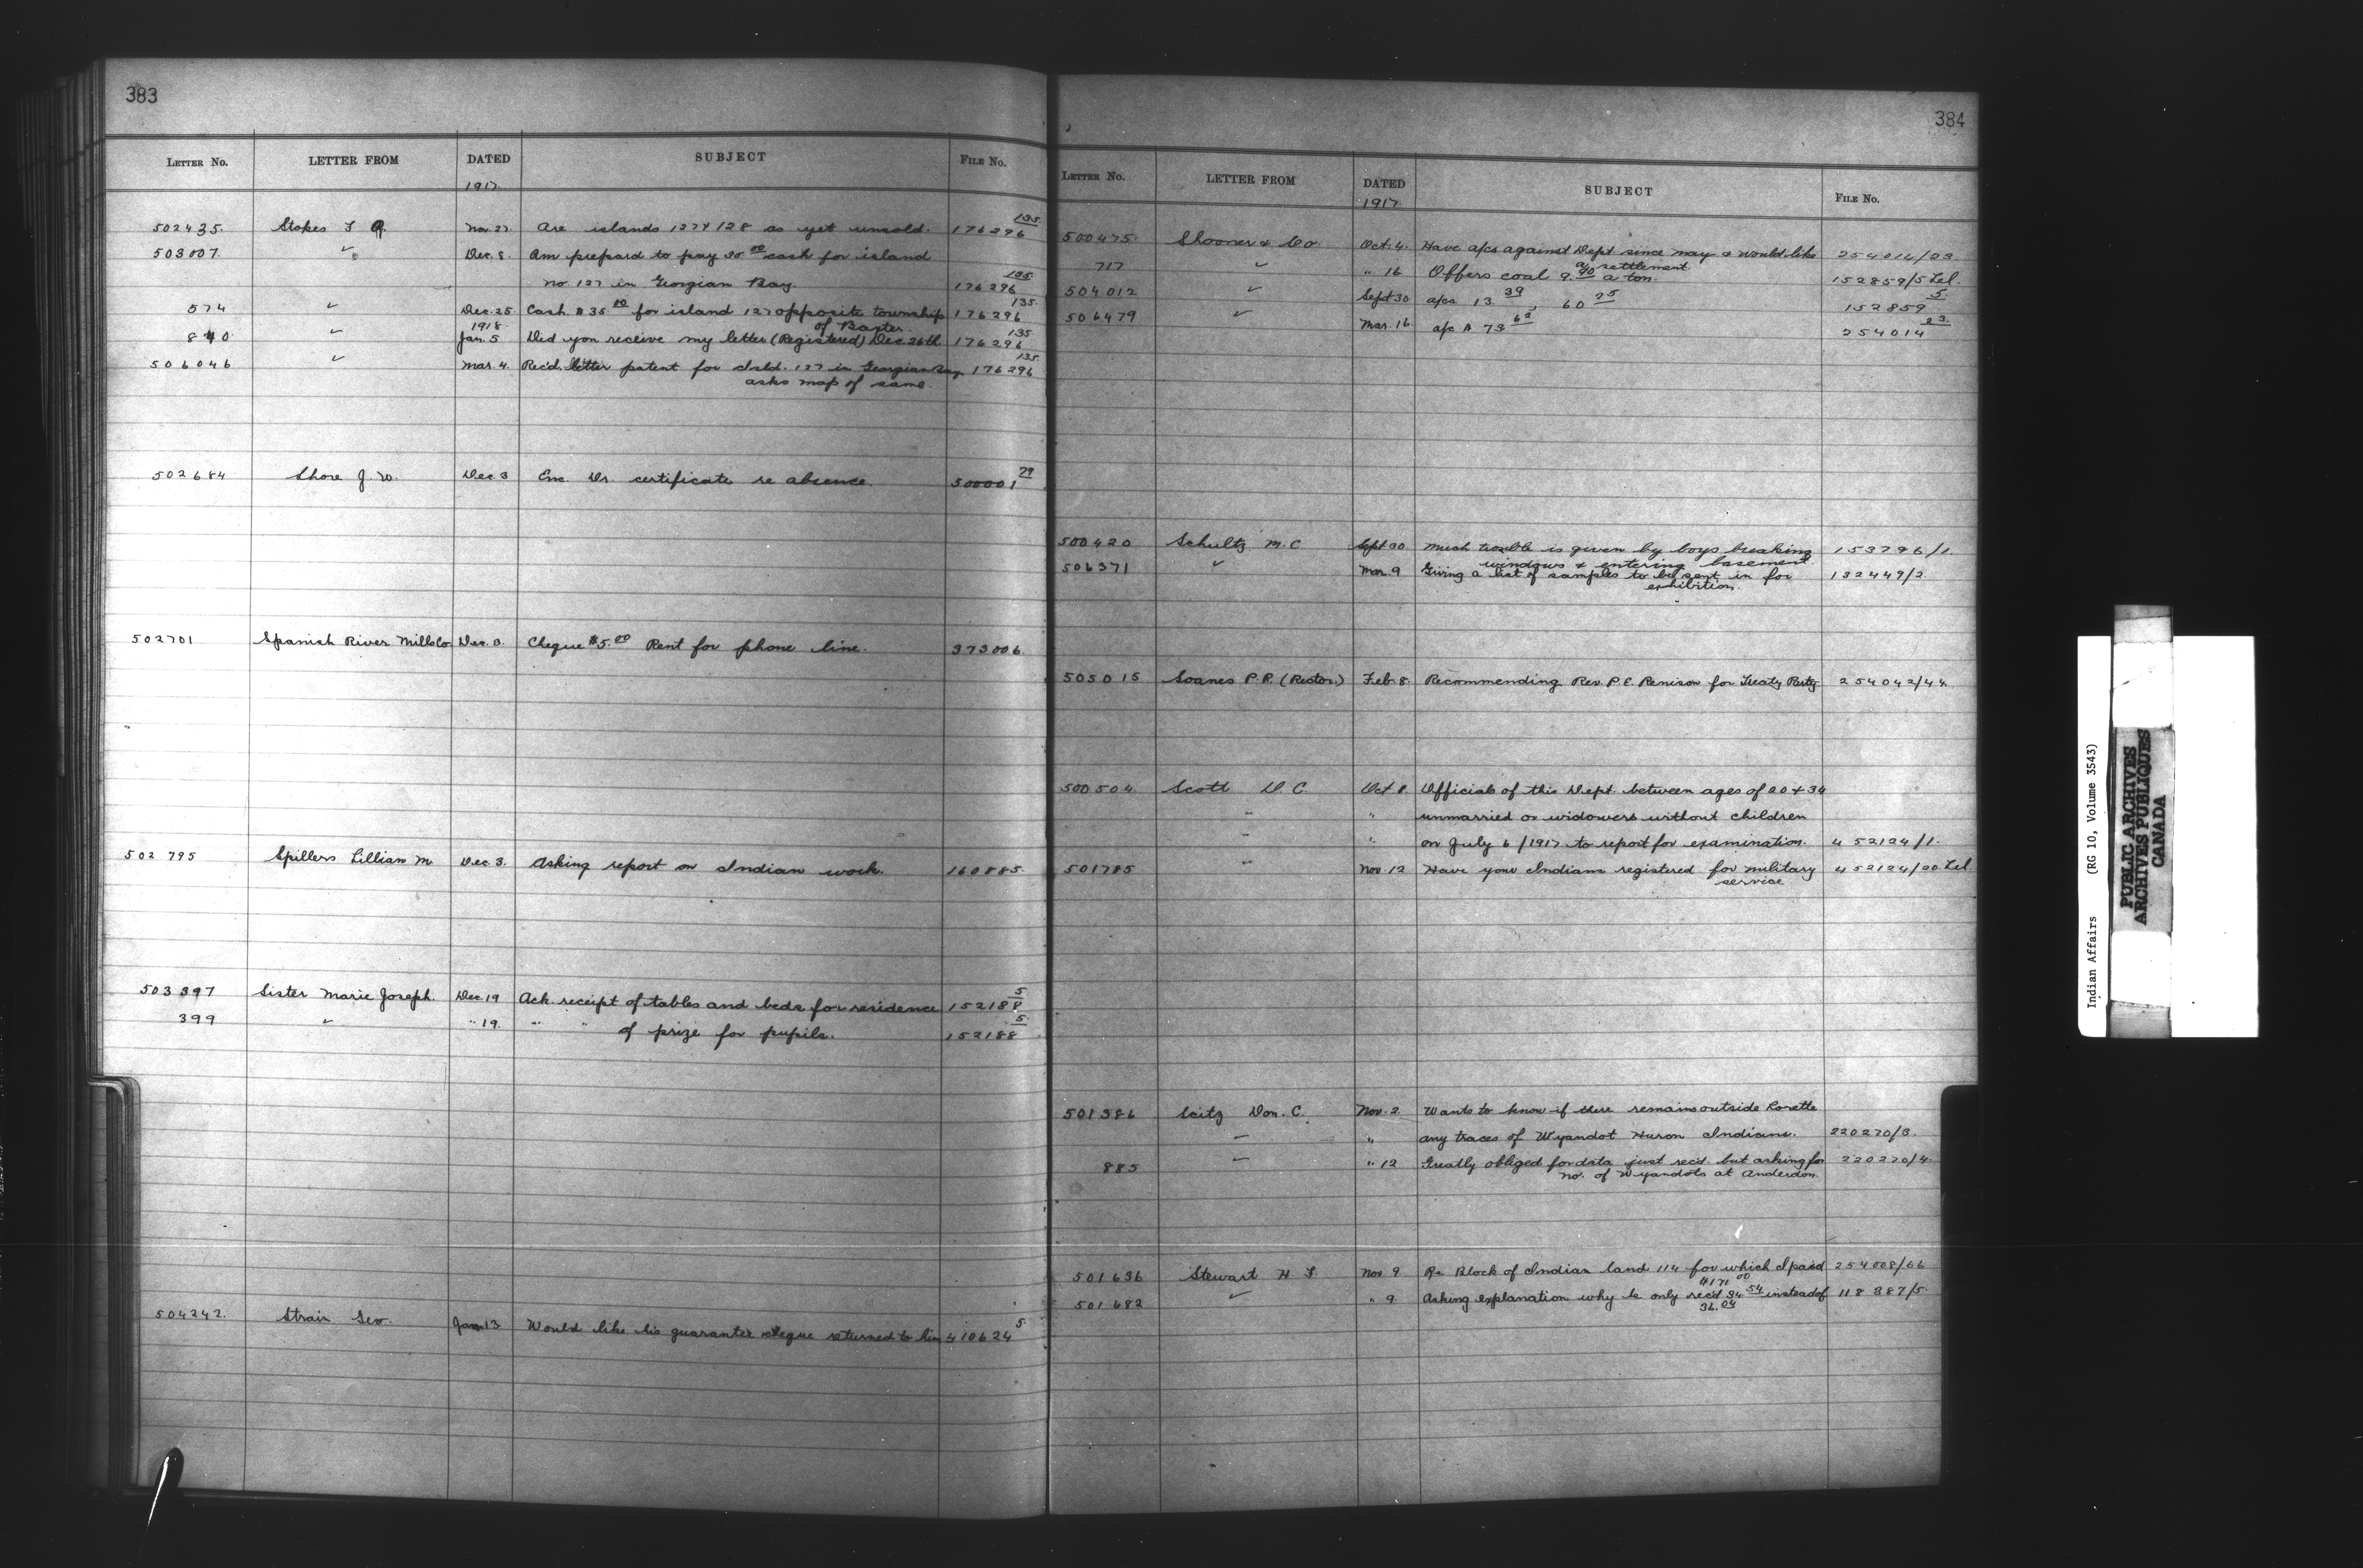 383
LETTER No. LETTER FROM DATED SUBJECT FILE No.
1917.
502435. Stokes F A Nov. 27 Are islands 127 & 128 as yet unsold. 176296 135
503007. " Dec. 8. Am prepared to pay 35 00 cash for island
No 127 in Georgian Bay. 176296 135
574 " Dec. 25. Cash $35.00 for island 127 opposite township 176296 135
of Baxter.
1918
840 " Jan. 5 Did you receive my letter (Registered) Dec. 26th 176296 135
506046 " Mar. 4. Rec'd. letter patent for Isld. 127 in Georgian Bay 176296 135
asks map of same.
502684 Shore J. W. Dec. 3 Enc. Dr. certificate re absence. 500001 79
502701 Spanish River Mills Co. Dec. 3. Cheque $5.00 Rent for phone line. 373006
502795 Spillers Lillian M Dec. 3. Asking report on Indian work. 160885.
503397 Sister Marie Joseph. Dec. 19 Ack. receipt of tables and beds for residence 152188 5
399 " " 19. " " of prize for pupils. 152188 5
504242. Strain Geo. Jan 13 Would like his guarantee cheque returned to him 410624 5
384
LETTER No. LETTER FROM DATED SUBJECT FILE No.
1917.
500475. Shooner & Co. Oct. 4. Have a/cs against Dept since May & would like 254014/23
a settlement
717 " " 16 Offers coal 9.40 a ton. 152859/5 Tel.
504012 " Sept 30 a/cs 13.39, 60 25 152859 5.
506479 " Mar. 16. a/c $ 73 62 254014 23.
500420 Schultz M. C Sept 30 Much trouble is given by boys breaking 153796/1.
windows & entering basement.
506371 " Mar. 9 Giving a list of samples to be sent in for 132449/2
exhibition.
505015 Soanes P.R. (Rector.) Feb. 8. Recommending Rev. P.E. Renison for Treaty Party. 254042/44
500504 Scott D. C. Oct 8. Officials of this Dept. between ages of 20 & 34
" " unmarried or widowers without children
" " on July 6/1917 to report for examination. 452124/1.
501785 " Nov. 12 Have your Indians registered for military 452124/20 Tel.
service
501386 Seitz Don. C. Nov. 2 Wants to know if there remains outside Lorette
" " any traces of Wyandot Huron Indians. 220270/3.
885 " " 12 Greatly obliged for data just rec'd. but asking for 220270/4.
no. of Wyandots at Anderdon.
501636 Stewart H F. Nov. 9 Re Block of Indian land 114 for which I paid 254008/66
$171 00
501682 " " 9. Asking explanation why he only rec'd 34 54 instead of 118387/5.
36.04
Indian Affairs (RG 10, Volume 3543)
PUBLIC ARCHIVES
ARCHIVES PUBLIQUES
CANADA